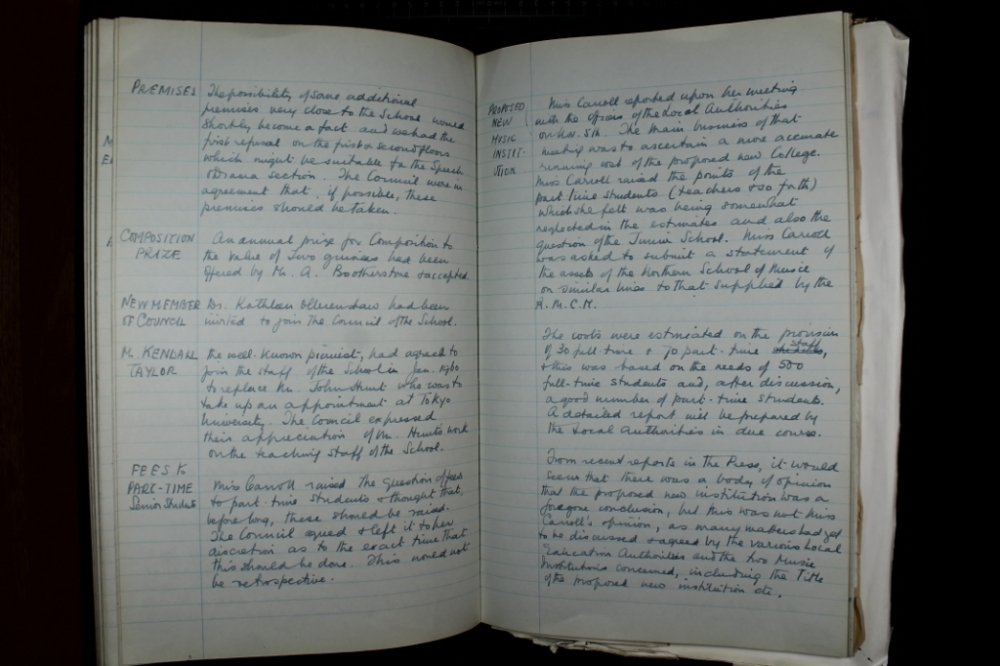 PREMISES
The possibility of some additional
premises very close to the School would
shortly become a fact and we had the
first refusal on the first & second floors
which might be suitable for the Speech
& Drama section. The Council were in
agreement that, if possible, these
premises should be taken.
COMPOSITION
PRIZE
An annual prize for Composition to
the value of two guineas had been
offered by Mr. A. Brotherstone & accepted.
NEW MEMBER
OF COUNCIL
Dr. Kathleen Ollerenshaw had been
invited to join the Council of the School.
Mr. KENDALL
TAYLOR
the well-known pianist, had agreed to
join the staff of the School in Jan. 1960
to replace Mr. John Hunt who was to
take up an appointment at Tokyo
University. The Council expressed
their appreciation of Mr. Hunt's work
on the teaching staff of the School.
FEES for
PART-TIME
Senior Students
Miss Carroll raised the question of fees
to part-time students & thought that,
before long, these should be raised.
The Council agreed & left it to her
discretion as to the exact time that
this should be done. This would not
be retrospective.
PROPOSED
NEW
MUSIC
INSTIT-
UTION
Miss Carroll reported upon her meeting
with the Officers of the Local Authorities
on Nov. 5th. The main business of that
meeting was to ascertain a more accurate
running cost of the proposed new College.
Miss Carroll raised the points of the
part time students (teachers & so forth)
which she felt was being somewhat
neglected in the estimates and also the
question of the Junior School. Miss Carroll
was asked to submit a statement of
the assets of the Northern School of Music
on similar lines to that supplied by the
R.M.C.M.
The costs were estimated on the provision
of 30 full time & 70 part-time staff,
& this was based on the needs of 500
full-time students and, after discussion,
a good number of part-time students.
A detailed report will be prepared by
the Local Authorities in due course.
From recent reports in the Press, it would
seem that there was a body of opinion
that the proposed new institution was a
foregone conclusion, but this was not Miss
Carroll's opinion, as many matters had yet
to be discussed & agreed by the various Local
Education Authorities and the two Music
Institutions concerned, including the Title
of the proposed new institution etc.